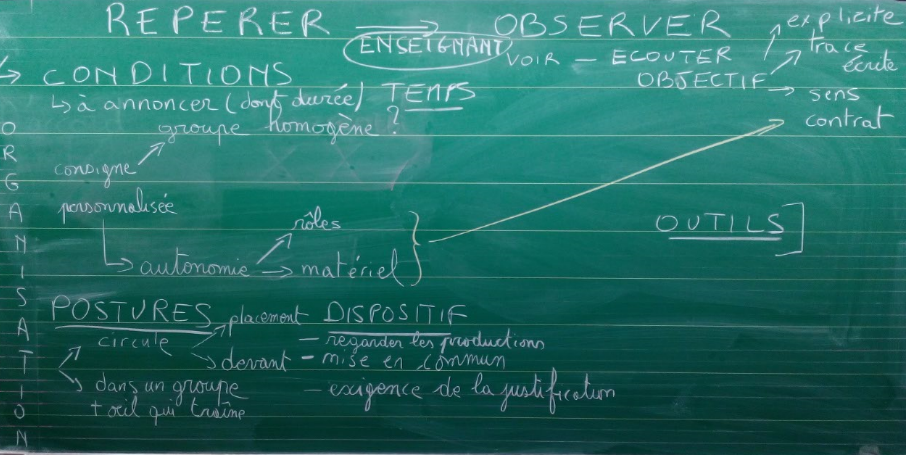 REPERER → OBSERVER
ENSEIGNANT
VOIR — ECOUTER
OBJECTIF
explicite
trace
écrite
sens
contrat
→ CONDITIONS
↳ à annoncer (dont durée) TEMPS
groupe homogène ?
consigne
personnalisée
rôles
↳ autonomie → matériel
OUTILS
ORGANISATION
POSTURES
circule
placement
devant
dans un groupe
+ œil qui traîne
DISPOSITIF
— regarder les productions
— mise en commun
— exigence de la justification